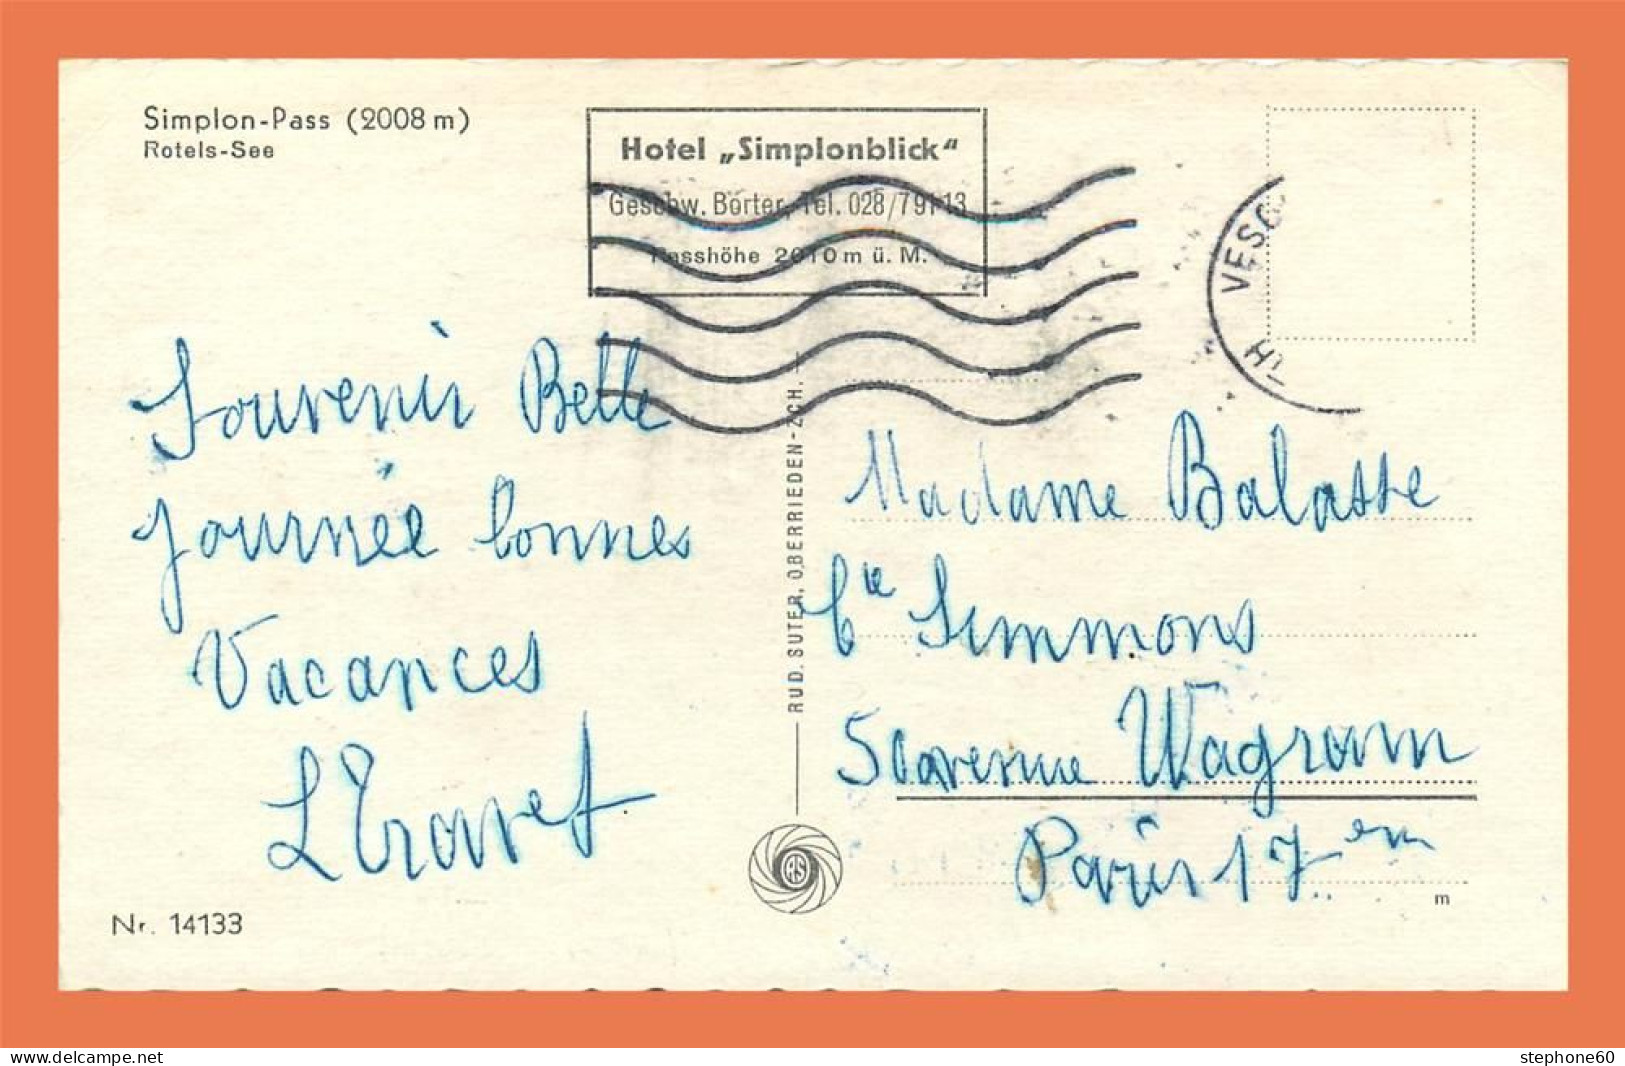 Simplon-Pass (2008 m)
Rotels-See
Hotel „Simplonblick“
Geschw. Börter, Tel. 028/7 91 13
Passhöhe 2010 m ü. M.
Souvenir Belle
journée bonnes
Vacances
Nr. 14133
RUD. SUTER, OBERRIEDEN-ZCH.
RS
Madame Balasse
Cie Simmons
avenue Wagram
Paris 17em
m
delcampe.net
stephone60